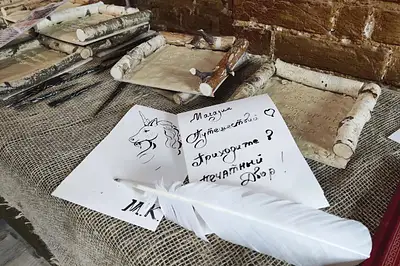 Магия
Путешествий
Приходите
Печатный
Двор!
М.К